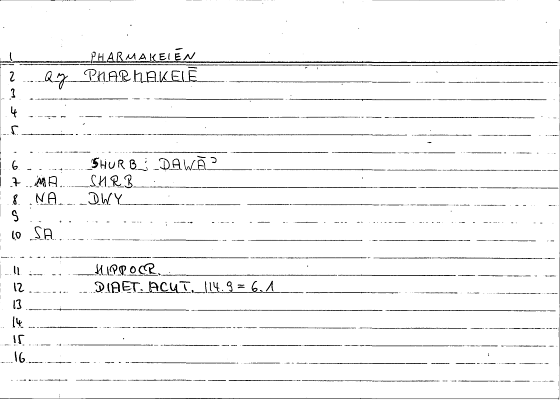 1 PHARMAKEIĒN
2 ag PHARMAKEIĒ
3
4
5
6 SHURB ; DAWĀʾ
7 MA SHRB
8 NA DWY
9
10 SA
11 HIPPOCR.
12 DIAET. ACUT. 114.9 = 6.1
13
14
15
16